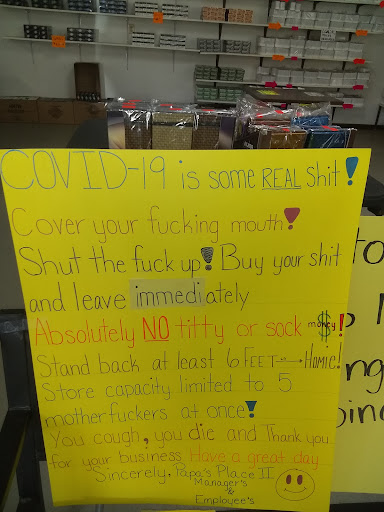 COVID-19 is some REAL shit!
Cover your fucking mouth!
Shut the fuck up! Buy your shit
and leave immediately
Absolutely NO titty or sock money $!
Stand back at least 6 FEET → HOMIE!
Store capacity limited to 5
motherfuckers at once!
You cough, you die and Thank you
for your business Have a great day
Sincerely, Papa's Place II
Manager's
&
Employee's